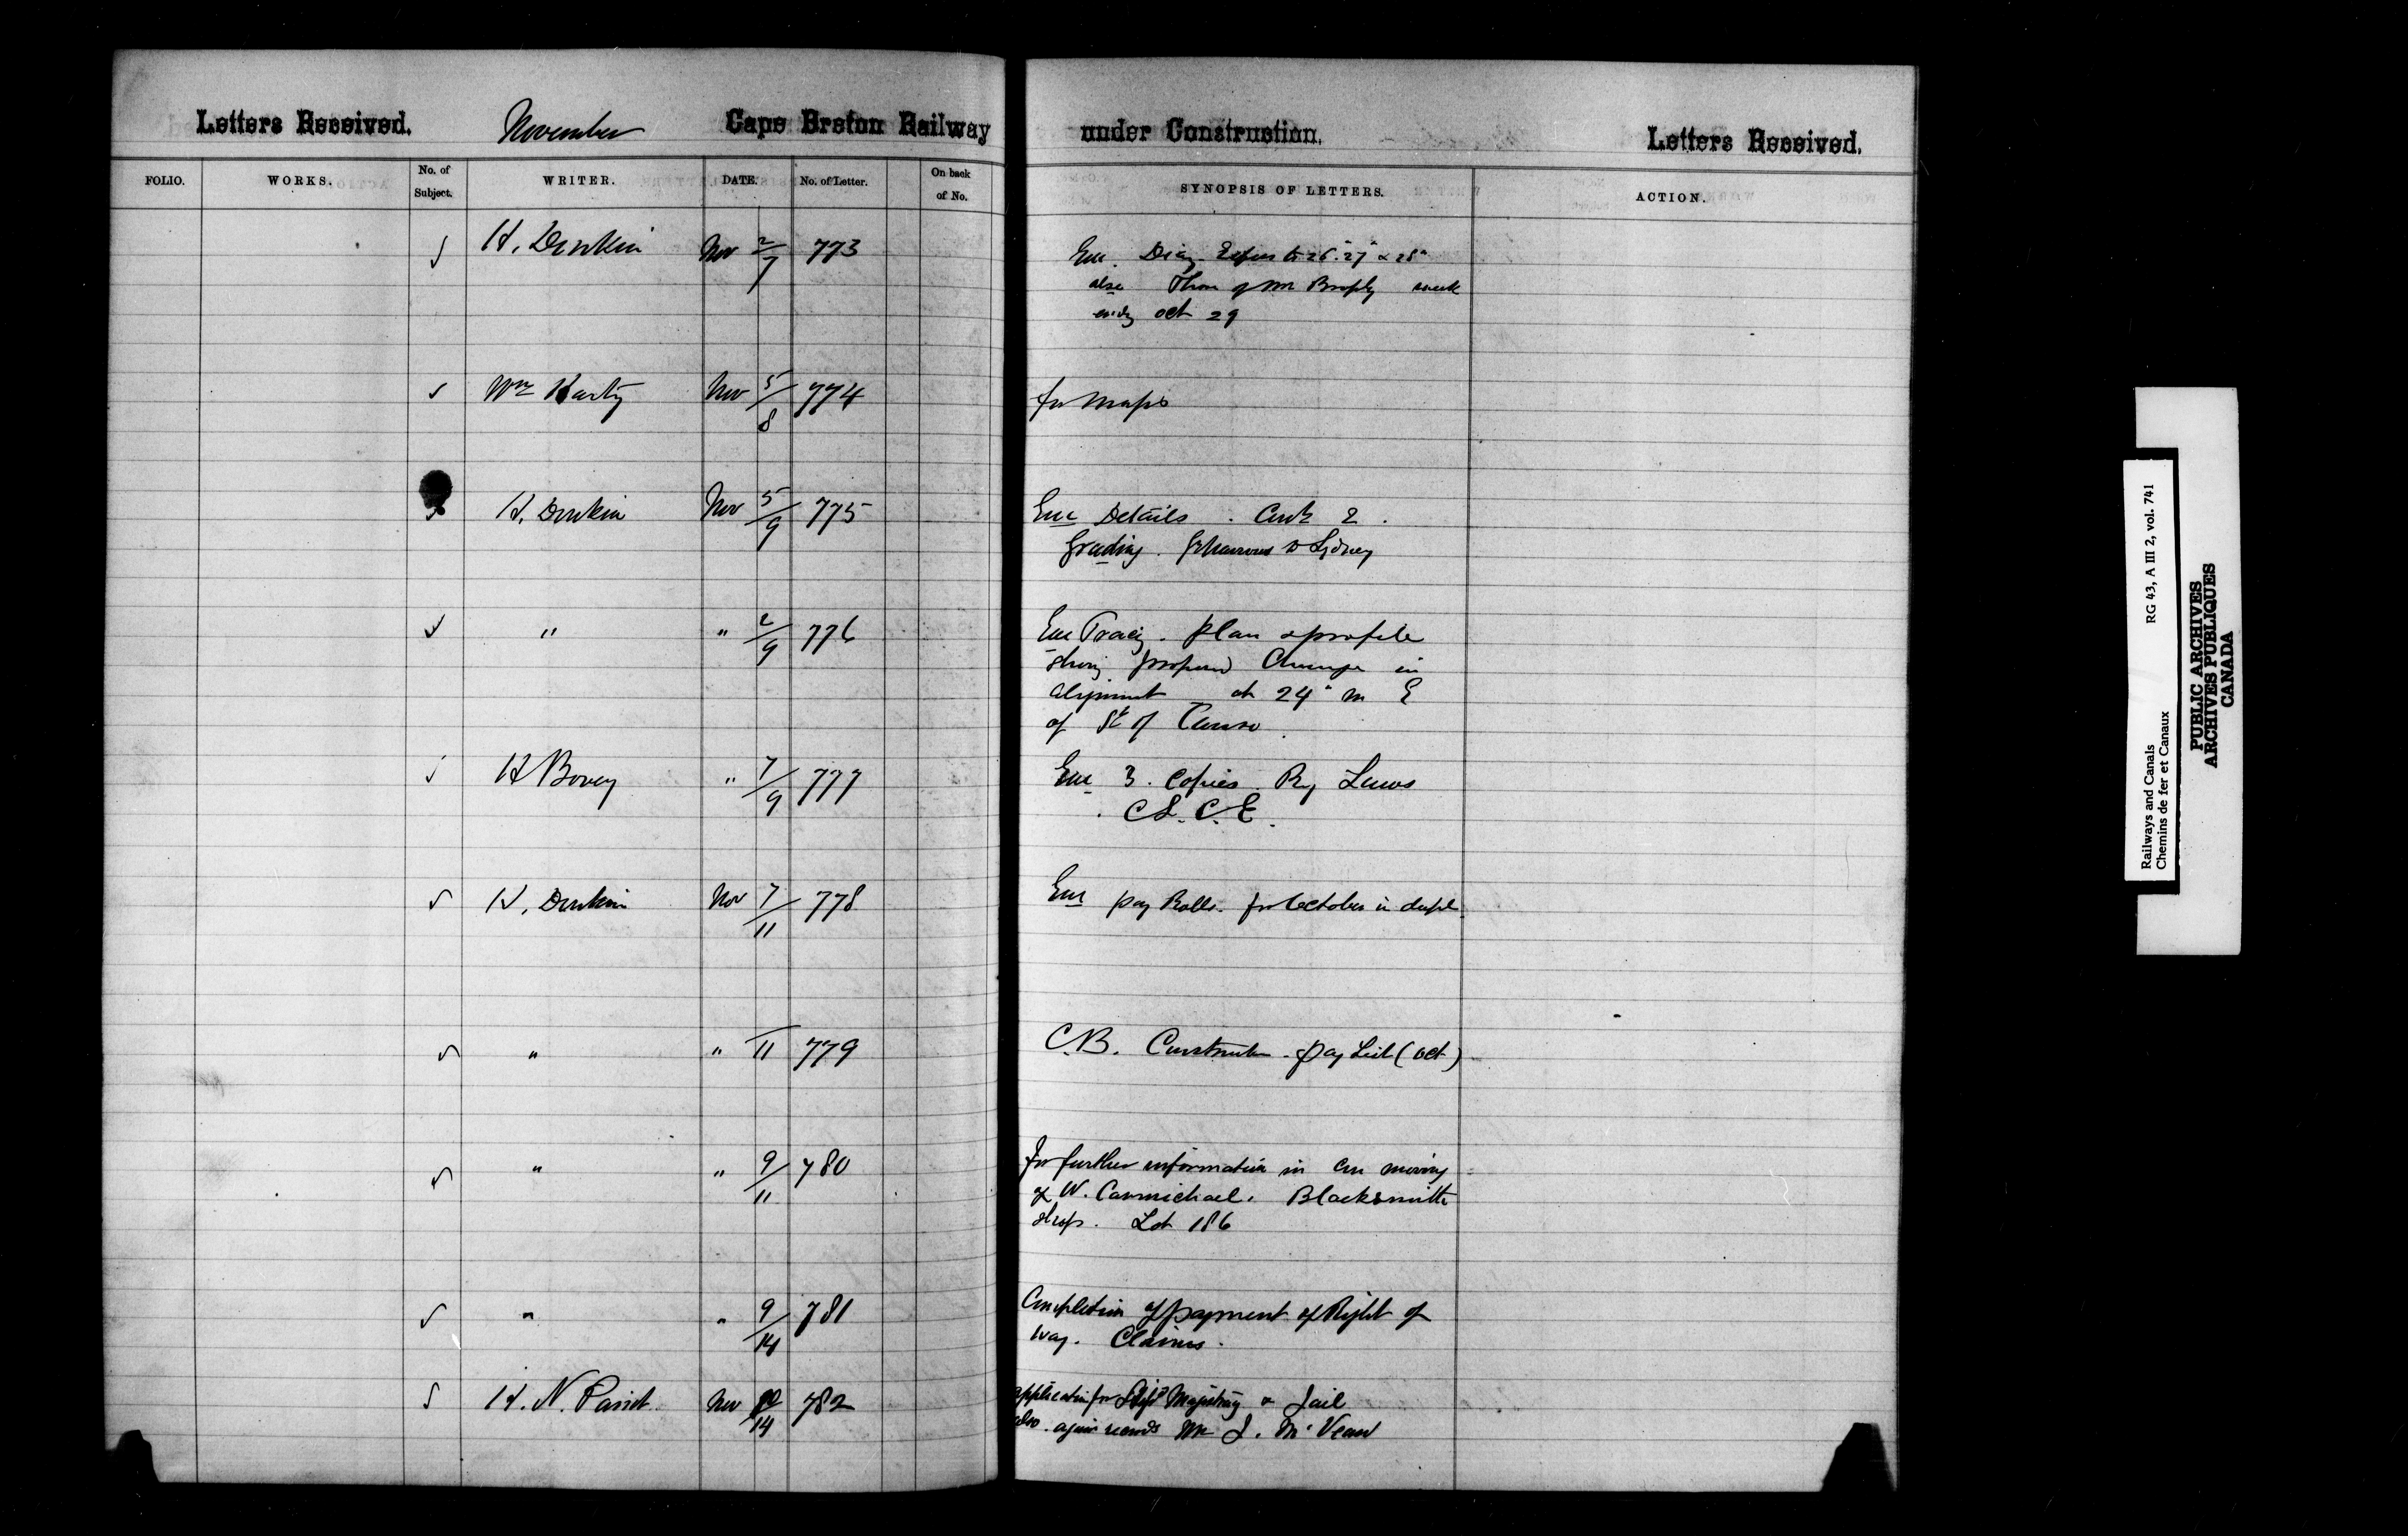 Letters Received. November Cape Breton Railway under Construction. Letters Received.
FOLIO. WORKS. No. of Subject. WRITER. DATE. No. of Letter. On back of No. SYNOPSIS OF LETTERS. ACTION.
H. Donkin Nov 2/7 773 Enc. Diary 26" 27" & 28"
also of Mr Brophy week
endg oct 29
Wm Harty Nov 5/8 774 for Maps
H. Donkin Nov 5/9 775 Enc Details. 2.
Grading. Grt Narrows to Sydney
" " 2/9 776 Enc Tracg. Plan & profile
showing proposed Change in
alignment at 24" m E
of St of Canso.
H Bovey " 7/9 777 Enc 3. Copies By Laws
C.S.C.E.
H. Donkin Nov 7/11 778 Enc pay Rolls. for October in dupl.
" " /11 779 C.B. Construction. pay List (Oct)
" " 9/11 780 for further information in moving
of W. Carmichael. Blacksmith
shop. Lot 186
" " 9/14 781 Completion of payment of Right of
way. Claims.
H. N. Nov /14 782 application for & Jail
also. again Mr J. McVean
Railways and Canals RG 43, A III 2, vol. 741
Chemins de fer et Canaux
PUBLIC ARCHIVES
ARCHIVES PUBLIQUES
CANADA